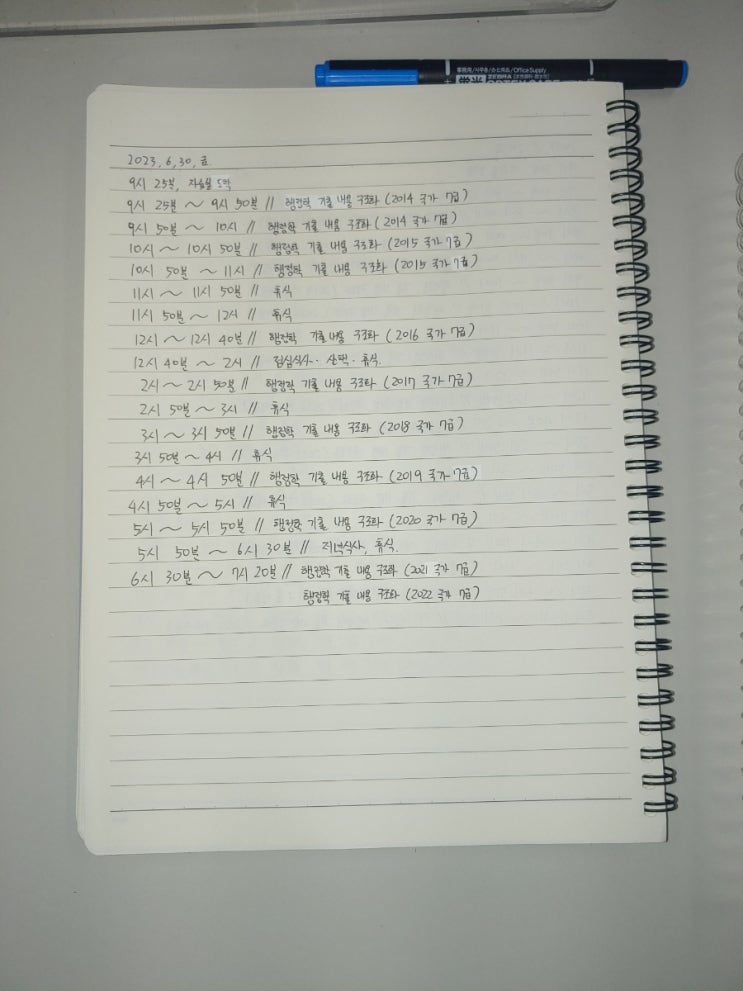 業務用/사무용/办公用品/Office Supply
ZEBRA
2023, 6, 30, 금.
9시 25분, 자습실 도착
9시 25분 ~ 9시 50분 // 행정학 기출 내용 구조화 (2014 국가 7급)
9시 50분 ~ 10시 // 행정학 기출 내용 구조화 (2014 국가 7급)
10시 ~ 10시 50분 // 행정학 기출 내용 구조화 (2015 국가 7급)
10시 50분 ~ 11시 // 행정학 기출 내용 구조화 (2015 국가 7급)
11시 ~ 11시 50분 // 휴식
11시 50분 ~ 12시 // 휴식
12시 ~ 12시 40분 // 행정학 기출 내용 구조화 (2016 국가 7급)
12시 40분 ~ 2시 // 점심식사· 산책· 휴식.
2시 ~ 2시 50분 // 행정학 기출 내용 구조화 (2017 국가 7급)
2시 50분 ~ 3시 // 휴식
3시 ~ 3시 50분 // 행정학 기출 내용 구조화 (2018 국가 7급)
3시 50분 ~ 4시 // 휴식
4시 ~ 4시 50분 // 행정학 기출 내용 구조화 (2019 국가 7급)
4시 50분 ~ 5시 // 휴식
5시 ~ 5시 50분 // 행정학 기출 내용 구조화 (2020 국가 7급)
5시 50분 ~ 6시 30분 // 저녁식사, 휴식.
6시 30분 ~ 7시 20분 // 행정학 기출 내용 구조화 (2021 국가 7급)
행정학 기출 내용 구조화 (2022 국가 7급)